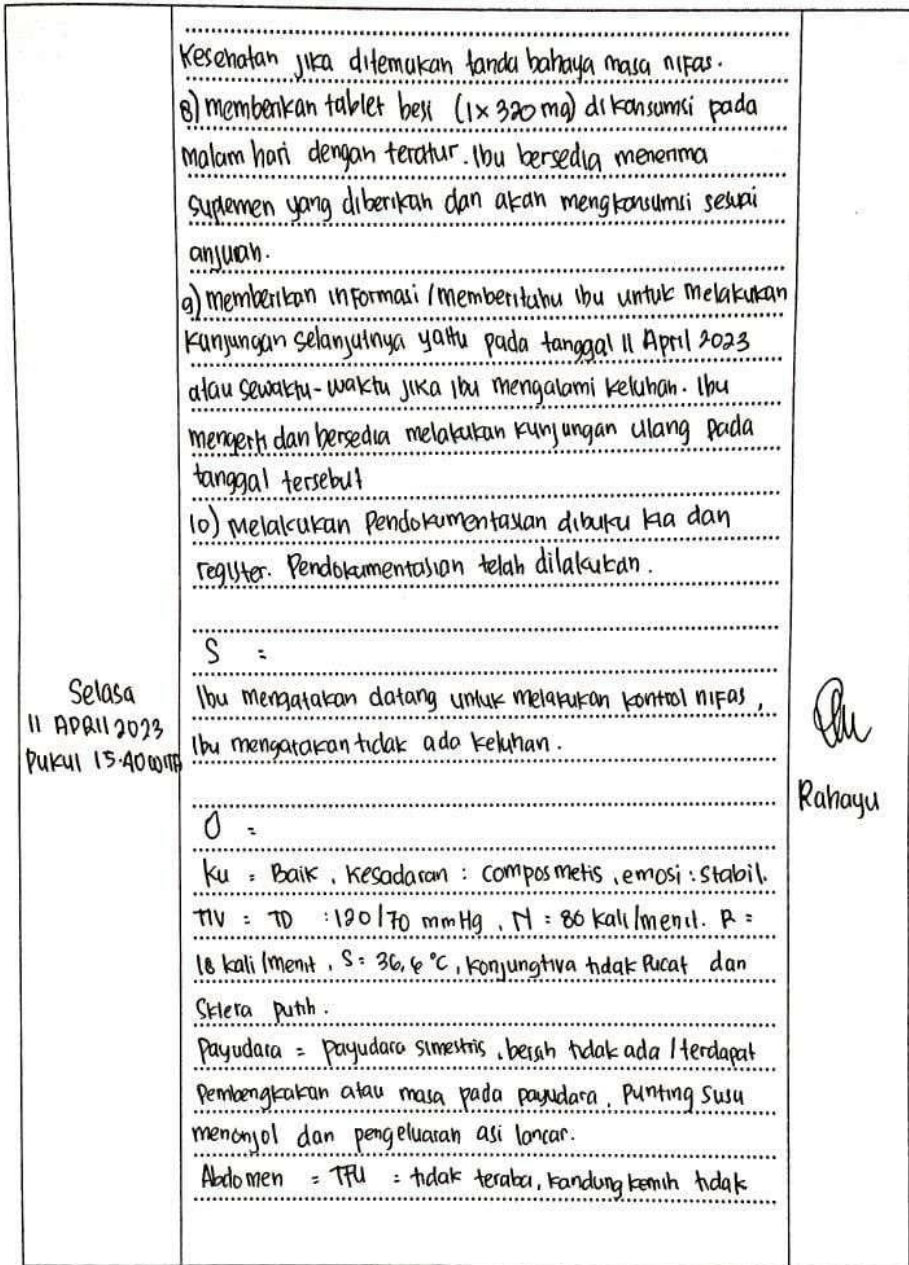 Kesehatan jika ditemukan tanda bahaya masa nifas.
8) memberikan tablet besi (1x 320 mg) di konsumsi pada
malam hari dengan teratur. Ibu bersedia menerima
suplemen yang diberikan dan akan mengkonsumsi sesuai
anjuran.
9) memberikan informasi /memberitahu ibu untuk melakukan
kunjungan selanjutnya yaitu pada tanggal 11 April 2023
atau sewaktu-waktu jika ibu mengalami keluhan. Ibu
mengerti dan bersedia melakukan kunjungan ulang pada
tanggal tersebut
10) Melakukan Pendokumentasian dibuku kia dan
register. Pendokumentasian telah dilakukan.
Selasa
11 APRIL 2023
Pukul 15.40 WITA
S :
Ibu mengatakan datang untuk melakukan kontrol nifas,
Ibu mengatakan tidak ada keluhan.
O :
Ku : Baik, Kesadaran : composmetis, emosi : stabil.
TTV : TD : 120/70 mmHg, N : 86 kali/menit. R =
18 kali/menit, S = 36,6 °C, konjungtiva tidak Pucat dan
Sklera putih.
Payudara = payudara simestris, bersih tidak ada /terdapat
Pembengkakan atau masa pada payudara, Punting susu
menonjol dan pengeluaran asi lancar.
Abdomen = TFU = tidak teraba, kandung kemih tidak
Rahayu